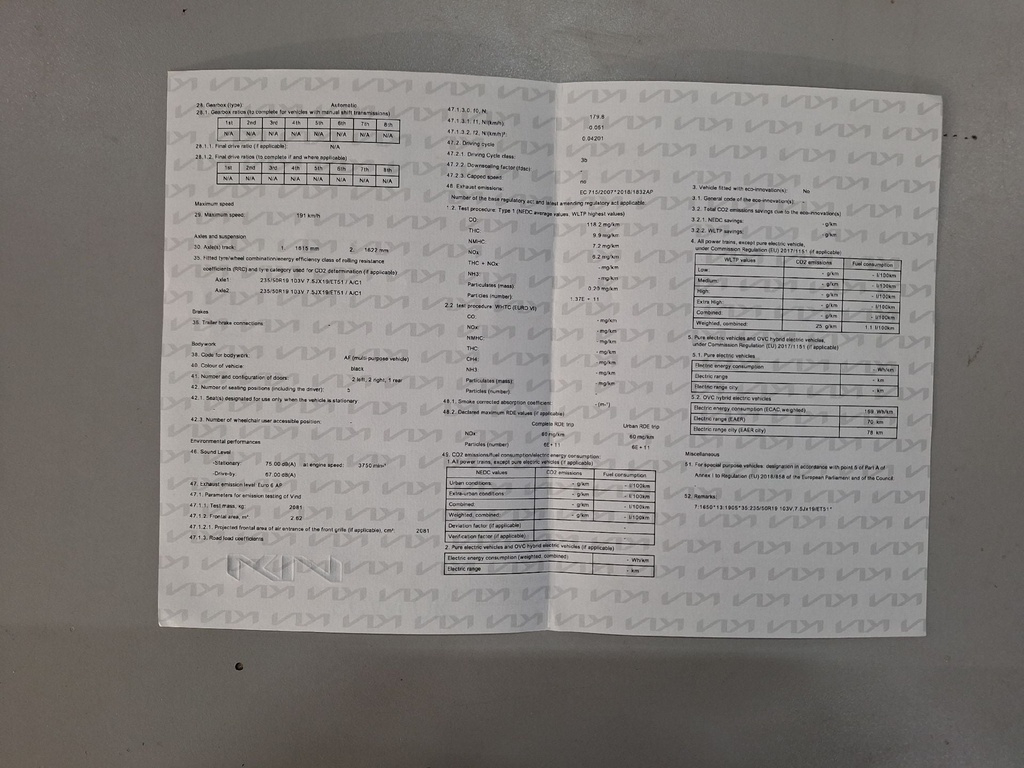 28. Gearbox (type) Automatic
28.1. Gearbox ratios (to complete for vehicles with manual shift transmissions)
1st 2nd 3rd 4th 5th 6th 7th 8th
N/A N/A N/A N/A N/A N/A N/A N/A
28.1.1. Final drive ratio (if applicable): N/A
28.1.2. Final drive ratios (to complete if and where applicable)
1st 2nd 3rd 4th 5th 6th 7th 8th
N/A N/A N/A N/A N/A N/A N/A N/A
Maximum speed
29. Maximum speed: 191 km/h
Axles and suspension
30. Axle(s) track: 1. 1615 mm 2. 1622 mm
35. Fitted tyre/wheel combination/energy efficiency class of rolling resistance
coefficients (RRC) and tyre category used for CO2 determination (if applicable):
Axle1 235/50R19 103V 7.5JX19/ET51 / A/C1
Axle2 235/50R19 103V 7.5JX19/ET51 / A/C1
Brakes
36. Trailer brake connections -
Bodywork
38. Code for bodywork: AF (multi-purpose vehicle)
40. Colour of vehicle: black
41. Number and configuration of doors: 2 left, 2 right, 1 rear
42. Number of seating positions (including the driver): 5
42.1. Seat(s) designated for use only when the vehicle is stationary
42.3. Number of wheelchair user accessible position: -
Environmental performances
46. Sound Level
-Stationary: 75.00 dB(A) at engine speed: 3750 min⁻¹
-Drive-by: 67.00 dB(A)
47. Exhaust emission level: Euro 6 AP
47.1. Parameters for emission testing of Vind
47.1.1. Test mass, kg: 2081
47.1.2. Frontal area, m²: 2.62
47.1.2.1. Projected frontal area of air entrance of the front grille (if applicable), cm²: 2081
47.1.3. Road load coefficients
47.1.3.0. f0, N: 179.8
47.1.3.1. f1, N/(km/h): 0.061
47.1.3.2. f2, N/(km/h)²: 0.04201
47.2. Driving cycle
47.2.1. Driving Cycle class: 3b
47.2.2. Downscaling factor (fdsc): -
47.2.3. Capped speed: no
48. Exhaust emissions: EC 715/2007*2018/1832AP
Number of the base regulatory act and latest amending regulatory act applicable:
1.2. Test procedure: Type 1 (NEDC average values, WLTP highest values)
CO: 118.2 mg/km
THC: 9.9 mg/km
NMHC: 7.2 mg/km
NOx: 6.2 mg/km
THC + NOx: - mg/km
NH3: - mg/km
Particulates (mass): 0.20 mg/km
Particles (number): 1.37E + 11
2.2. test procedure: WHTC (EURO VI)
CO: - mg/km
NOx: - mg/km
NMHC: - mg/km
THC: - mg/km
CH4: - mg/km
NH3: - mg/km
Particulates (mass): - mg/km
Particles (number):
48.1. Smoke corrected absorption coefficient: - (m⁻¹)
48.2. Declared maximum RDE values (if applicable)
Complete RDE trip Urban RDE trip
NOx: 60 mg/km 60 mg/km
Particles (number): 6E+11 6E+11
49. CO2 emissions/fuel consumption/electric energy consumption:
1. All power trains, except pure electric vehicles (if applicable)
NEDC values CO2 emissions Fuel consumption
Urban conditions: - g/km - l/100km
Extra-urban conditions: - g/km - l/100km
Combined: - g/km - l/100km
Weighted, combined: - g/km - l/100km
Deviation factor (if applicable)
Verification factor (if applicable)
2. Pure electric vehicles and OVC hybrid electric vehicles (if applicable)
Electric energy consumption (weighted, combined): - Wh/km
Electric range - km
3. Vehicle fitted with eco-innovation(s): No
3.1. General code of the eco-innovation(s):
3.2. Total CO2 emissions savings due to the eco-innovation(s)
3.2.1. NEDC savings: - g/km
3.2.2. WLTP savings: - g/km
4. All power trains, except pure electric vehicle,
under Commission Regulation (EU) 2017/1151 (if applicable)
WLTP values CO2 emissions Fuel consumption
Low: - g/km - l/100km
Medium: - g/km - l/100km
High: - g/km - l/100km
Extra High: - g/km - l/100km
Combined: - g/km - l/100km
Weighted, combined: 25 g/km 1.1 l/100km
5. Pure electric vehicles and OVC hybrid electric vehicles,
under Commission Regulation (EU) 2017/1151 (if applicable)
5.1. Pure electric vehicles
Electric energy consumption - Wh/km
Electric range - km
Electric range city - km
5.2. OVC hybrid electric vehicles
Electric energy consumption (ECAC, weighted) 169 Wh/km
Electric range (EAER) 70 km
Electric range city (EAER city) 78 km
Miscellaneous
51. For special purpose vehicles: designation in accordance with point 5 of Part A of
Annex I to Regulation (EU) 2018/858 of the European Parliament and of the Council
52. Remarks:
7:1650*13:1905*35:235/50R19 103V,7.5Jx19/ET51*